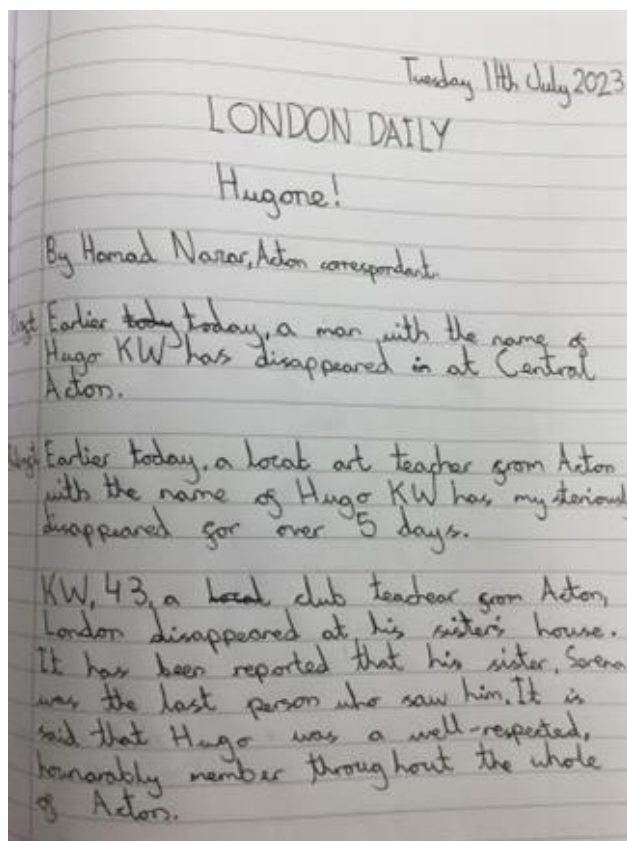 Tuesday 11th July 2023
LONDON DAILY
Hugone!
By Hamad Nasar, Acton correspondant.
Earlier today, a man with the name of
Hugo KW has disappeared in at Central
Acton.
Earlier today, a local art teacher from Acton
with the name of Hugo KW has mysteriously
disappeared for over 5 days.
KW, 43, a local club teachear from Acton,
London disappeared at his sister's house.
It has been reported that his sister, Serena
was the last person who saw him. It is
said that Hugo was a well-respected,
hounarably member throughout the whole
of Acton.